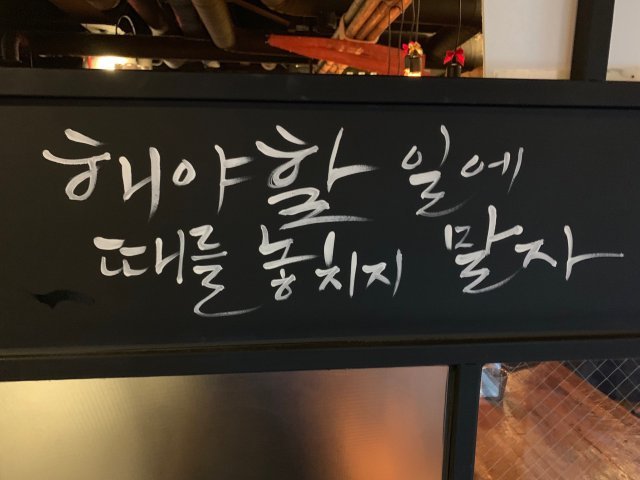 해야할 일에
때를 놓치지 말자